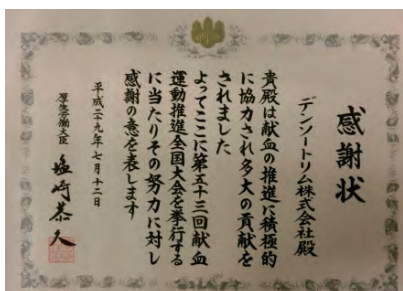 感謝状
デンソートリム株式会社殿
貴殿は献血の推進に積極的
に協力され多大の貢献を
されました
よってここに第五十三回献血
運動推進全国大会を挙行する
に当たりその努力に対し
感謝の意を表します
平成二十九年七月十二日
厚生労働大臣 塩崎恭久